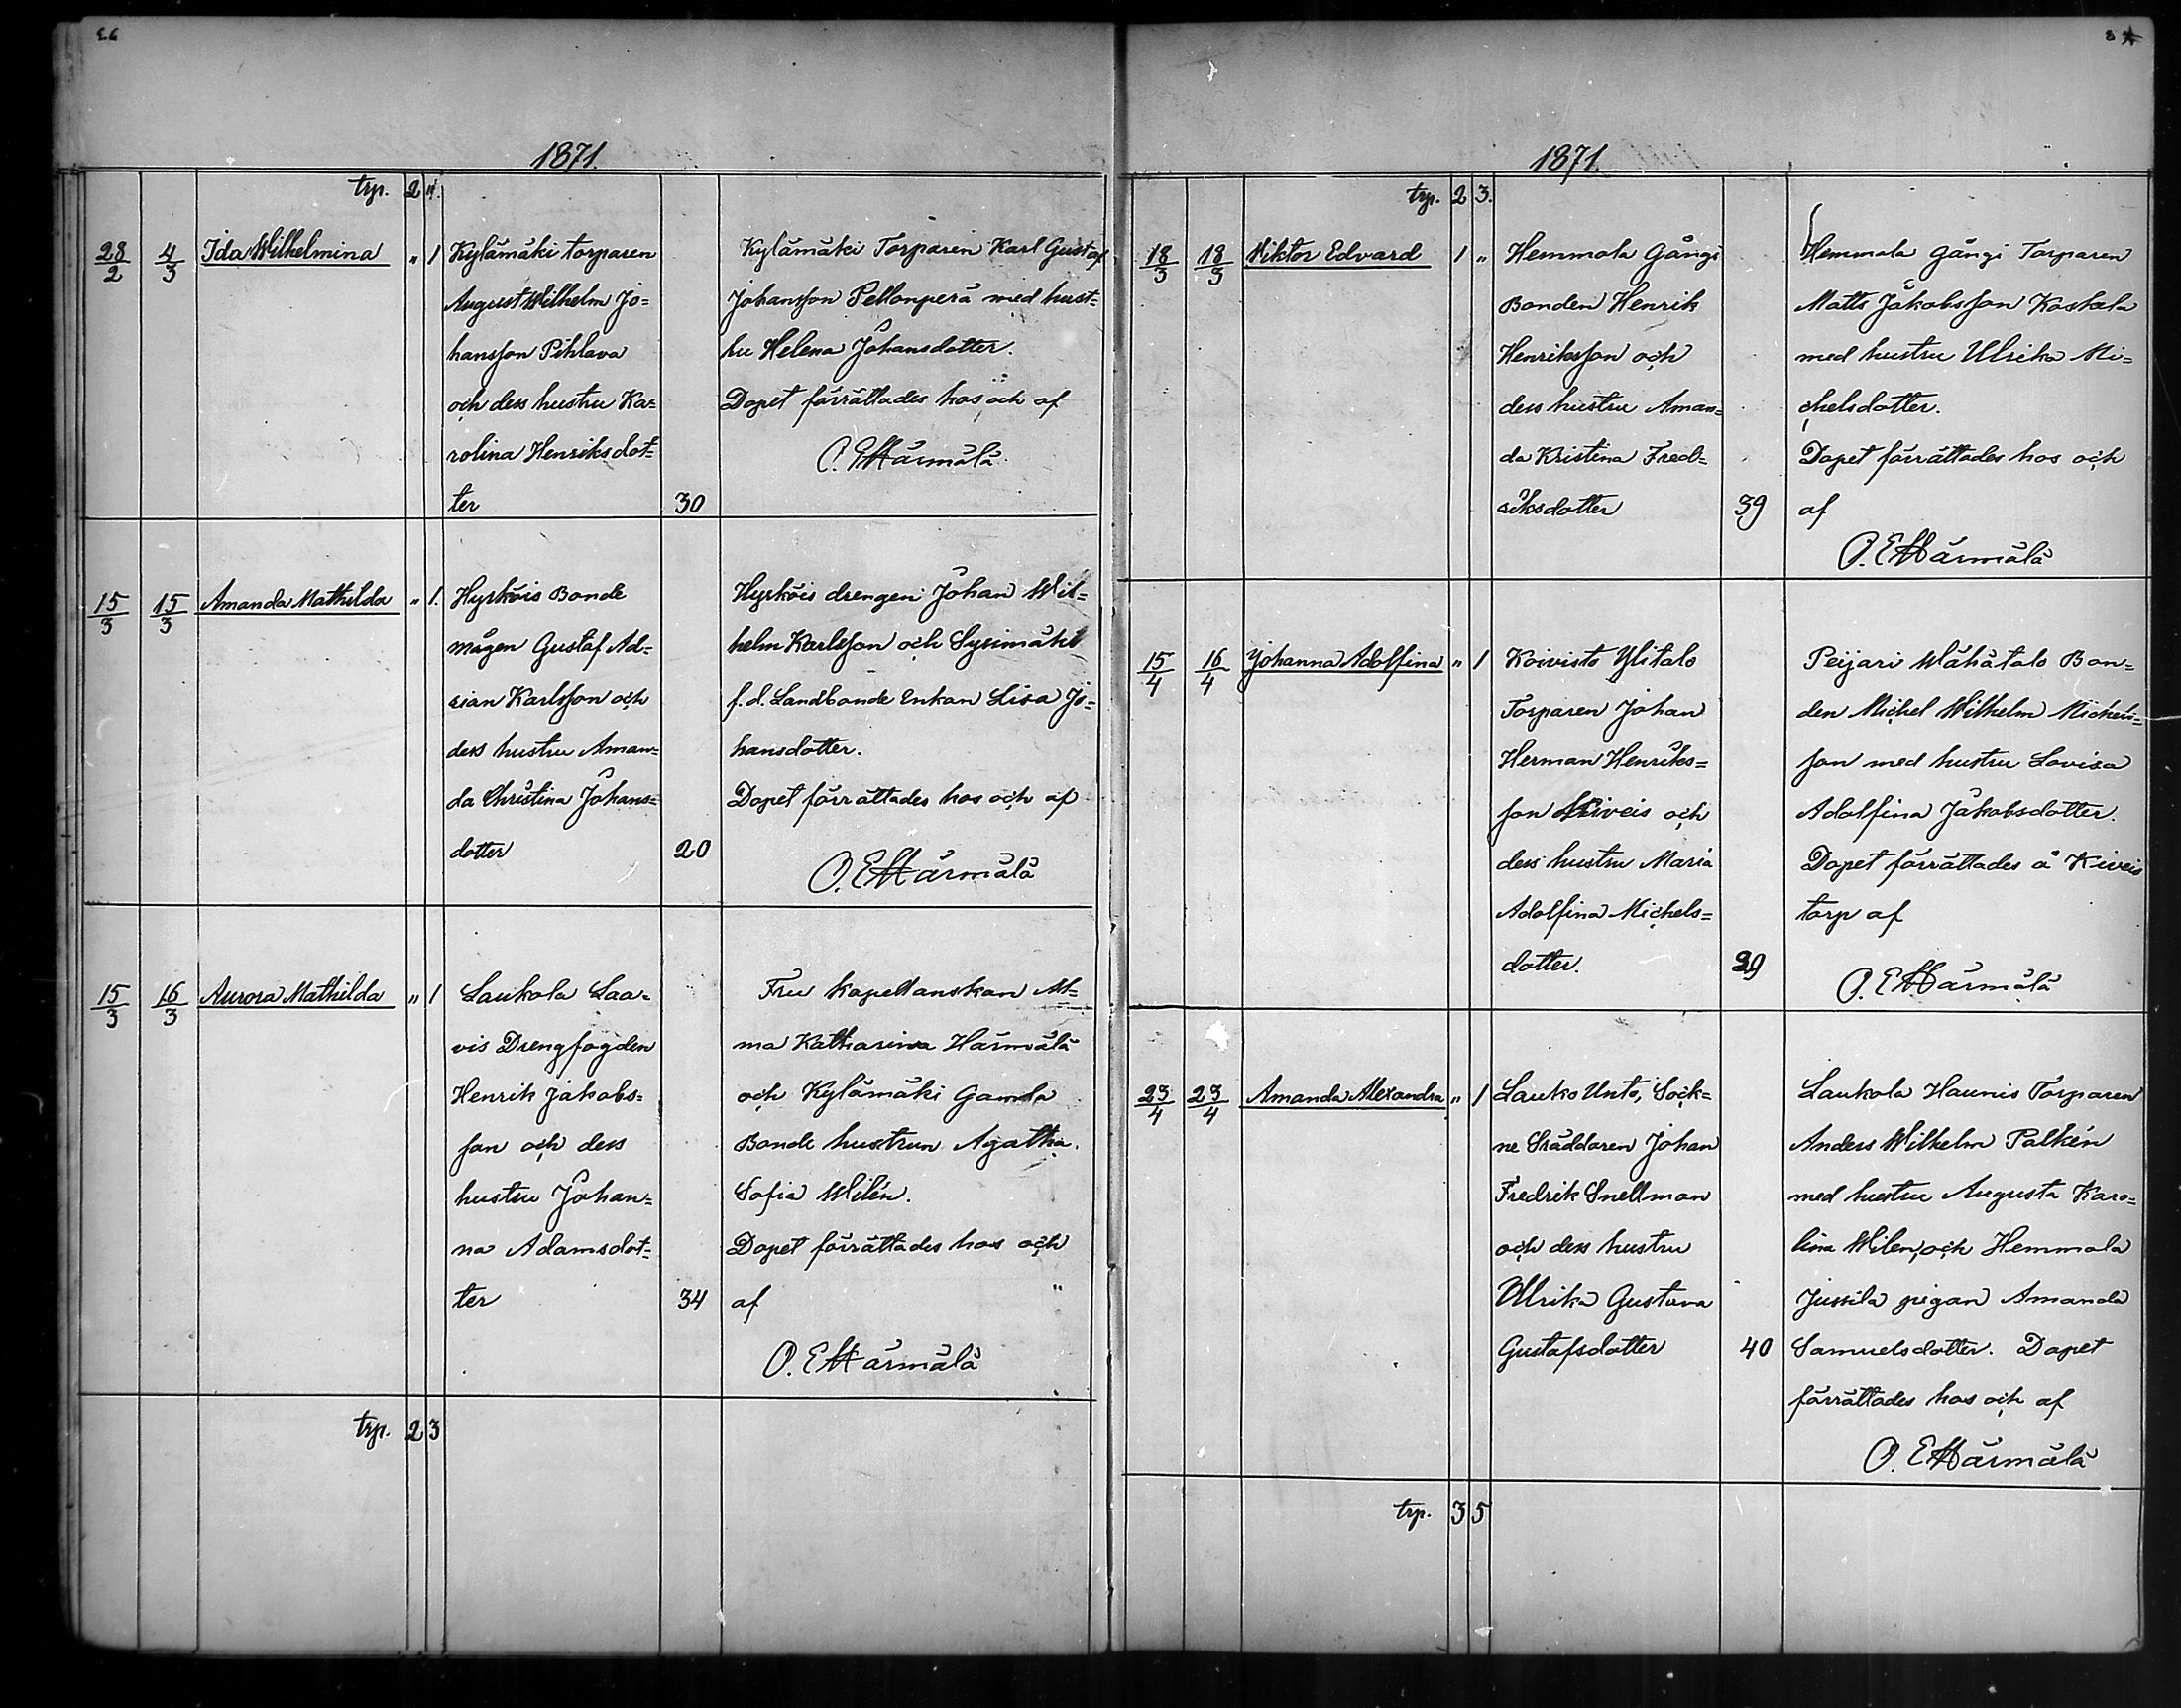 1871.
trp. 2
28/2 4/3 Ida Wilhelmina " 1 Kylämäki torparen
August Wilhelm Jo=
hansson Pihlava
och dess hustru Ka=
rolina Henriksdot=
ter 30
Kylämäki Torparen Karl Gustaf
Johansson Pellonperä med hust=
ru Helena Johansdotter.
Dopet förrättades hos och af
O. E Härmälä
15/3 15/3 Amanda Mathilda " 1. Hyrköis Bonde
mågen Gustaf Ad=
rian Karlsson och
dess hustru Aman=
da Christina Johans=
dotter 20
Hyrköis drengen Johan Wil=
helm Karlsson och Syrimäki
f.d. Landbonde Enkan Lisa Jo=
hansdotter.
Dopet förrättades hos och af
O. E Härmälä
15/3 16/3 Aurora Mathilda " 1 Laukola Laa=
vis Drengfogden
Henrik Jakobs=
son och dess
hustru Johan=
na Adamsdot=
ter 34
Fru Kapellanskan Al=
ma Katharina Härmälä
och Kylämäki Gamla
Bonde hustrun Agatha
Sofia Wilén.
Dopet förrättades hos och
af
O. E Härmälä
trp. 2 3
1871.
trp. 2 3.
18/3 18/3 Viktor Edvard 1 " Hemmola Gångi
Bonden Henrik
Henriksson och
dess hustru Aman=
da Kristina Fred=
riksdotter 39
Hemmola Gångi Torparen
Matts Jakobsson Koskela
med hustru Ulrika Mi=
chelsdotter.
Dopet förrättades hos och
af
O. E Härmälä
15/4 16/4 Johanna Adolfina " 1 Koivisto Ylitalo
Torparen Johan
Herman Henriks=
son Kiveis och
dess hustru Maria
Adolfina Michels=
dotter. 39
Peijari Wähätalo Bon=
den Michel Wilhelm Michels=
son med hustru Lovisa
Adolfina Jakobsdotter.
Dopet förrättades å Kiveis
torp af
O. E Härmälä
23/4 23/4 Amanda Alexandra " 1 Lauko Unto, Sock=
ne Skräddaren Johan
Fredrik Snellman
och dess hustru
Ulrika Gustava
Gustafsdotter 40
Laukola Haunis Torparen
Anders Wilhelm Palkén
med hustru Augusta Karo=
lina Wilen, och Hemmola
Jussila pigan Amanda
Samuelsdotter. Dopet
förrättades hos och af
O. E Härmälä
trp. 3 5